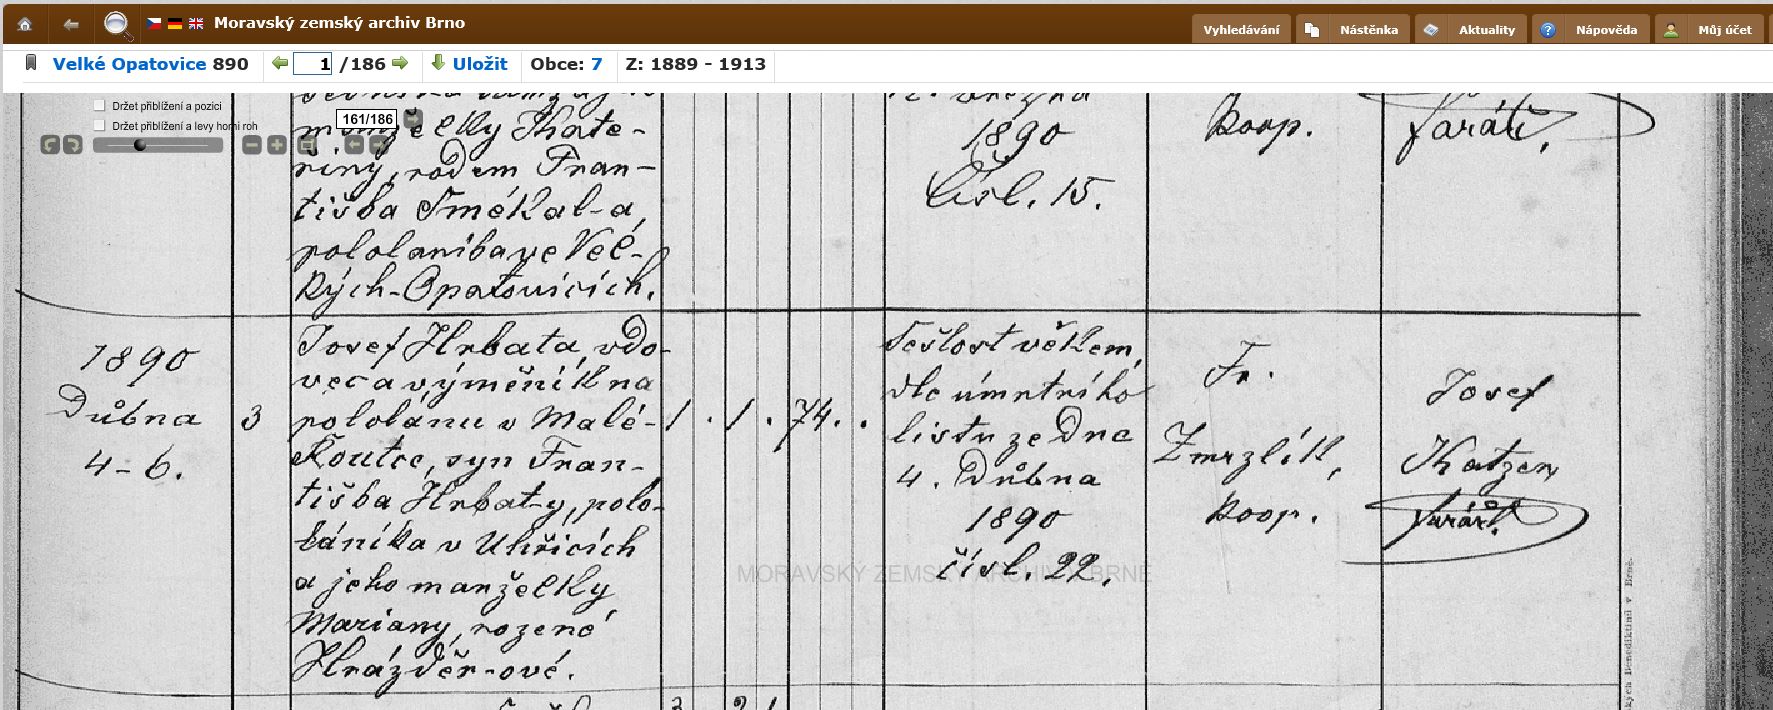 Moravský zemský archiv Brno
Vyhledávání
Nástěnka
Aktuality
Nápověda
Můj účet
Velké Opatovice 890
1 /186
Uložit
Obce: 7
Z: 1889 - 1913
Držet přiblížení a pozici
Držet přiblížení a levy horni roh
161/186
manželky Kate-
řiny, rodem Fran-
tiška Smékal-a,
pololaníka ve Vel-
kých-Opatovicích.
března
1890
Čísl. 15.
koop.
farář.
1890
Dubna
4-6.
3
Josef Hrbata, vdo-
vec a výměník na
pololánu v Malé-
Routce, syn Fran-
tiška Hrbaty, polo-
láníka v Uhřicích
a jeho manželky
Mariany, rozené
Hrázděr-ové.
1 . 1 . 74 . .
Sešlost věkem,
dle úmrtního
listu ze dne
4. Dubna
1890
čísl. 22.
Fr.
Zmrzlík,
koop.
Josef
Katzer
farář.
MORAVSKÝ ZEMSKÝ ARCHIV V BRNĚ